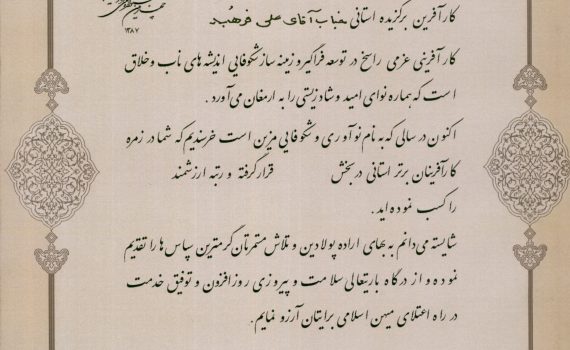 ۱۳۸۷
کارآفرین برگزیده استانی جناب آقای علی فرهبد
کارآفرینی عزمی راسخ در توسعه فراگیر و زمینه ساز شکوفایی اندیشه های ناب و خلاق
است که هماره نوای امید و شاد زیستی را به ارمغان می‌آورد .
اکنون در سالی که به نام نوآوری و شکوفایی مزین است خرسندیم که شما در زمره
کارآفرینان برتر استانی در بخش قرار گرفته و رتبه ارزشمند
را کسب نموده اید .
شایسته می‌دانم به بهای اراده پولادین و تلاش مستمرتان گرمترین سپاس ها را تقدیم
نموده و از درگاه باریتعالی سلامت و پیروزی روزافزون و توفیق خدمت
در راه اعتلای میهن اسلامی برایتان آرزو نمایم.